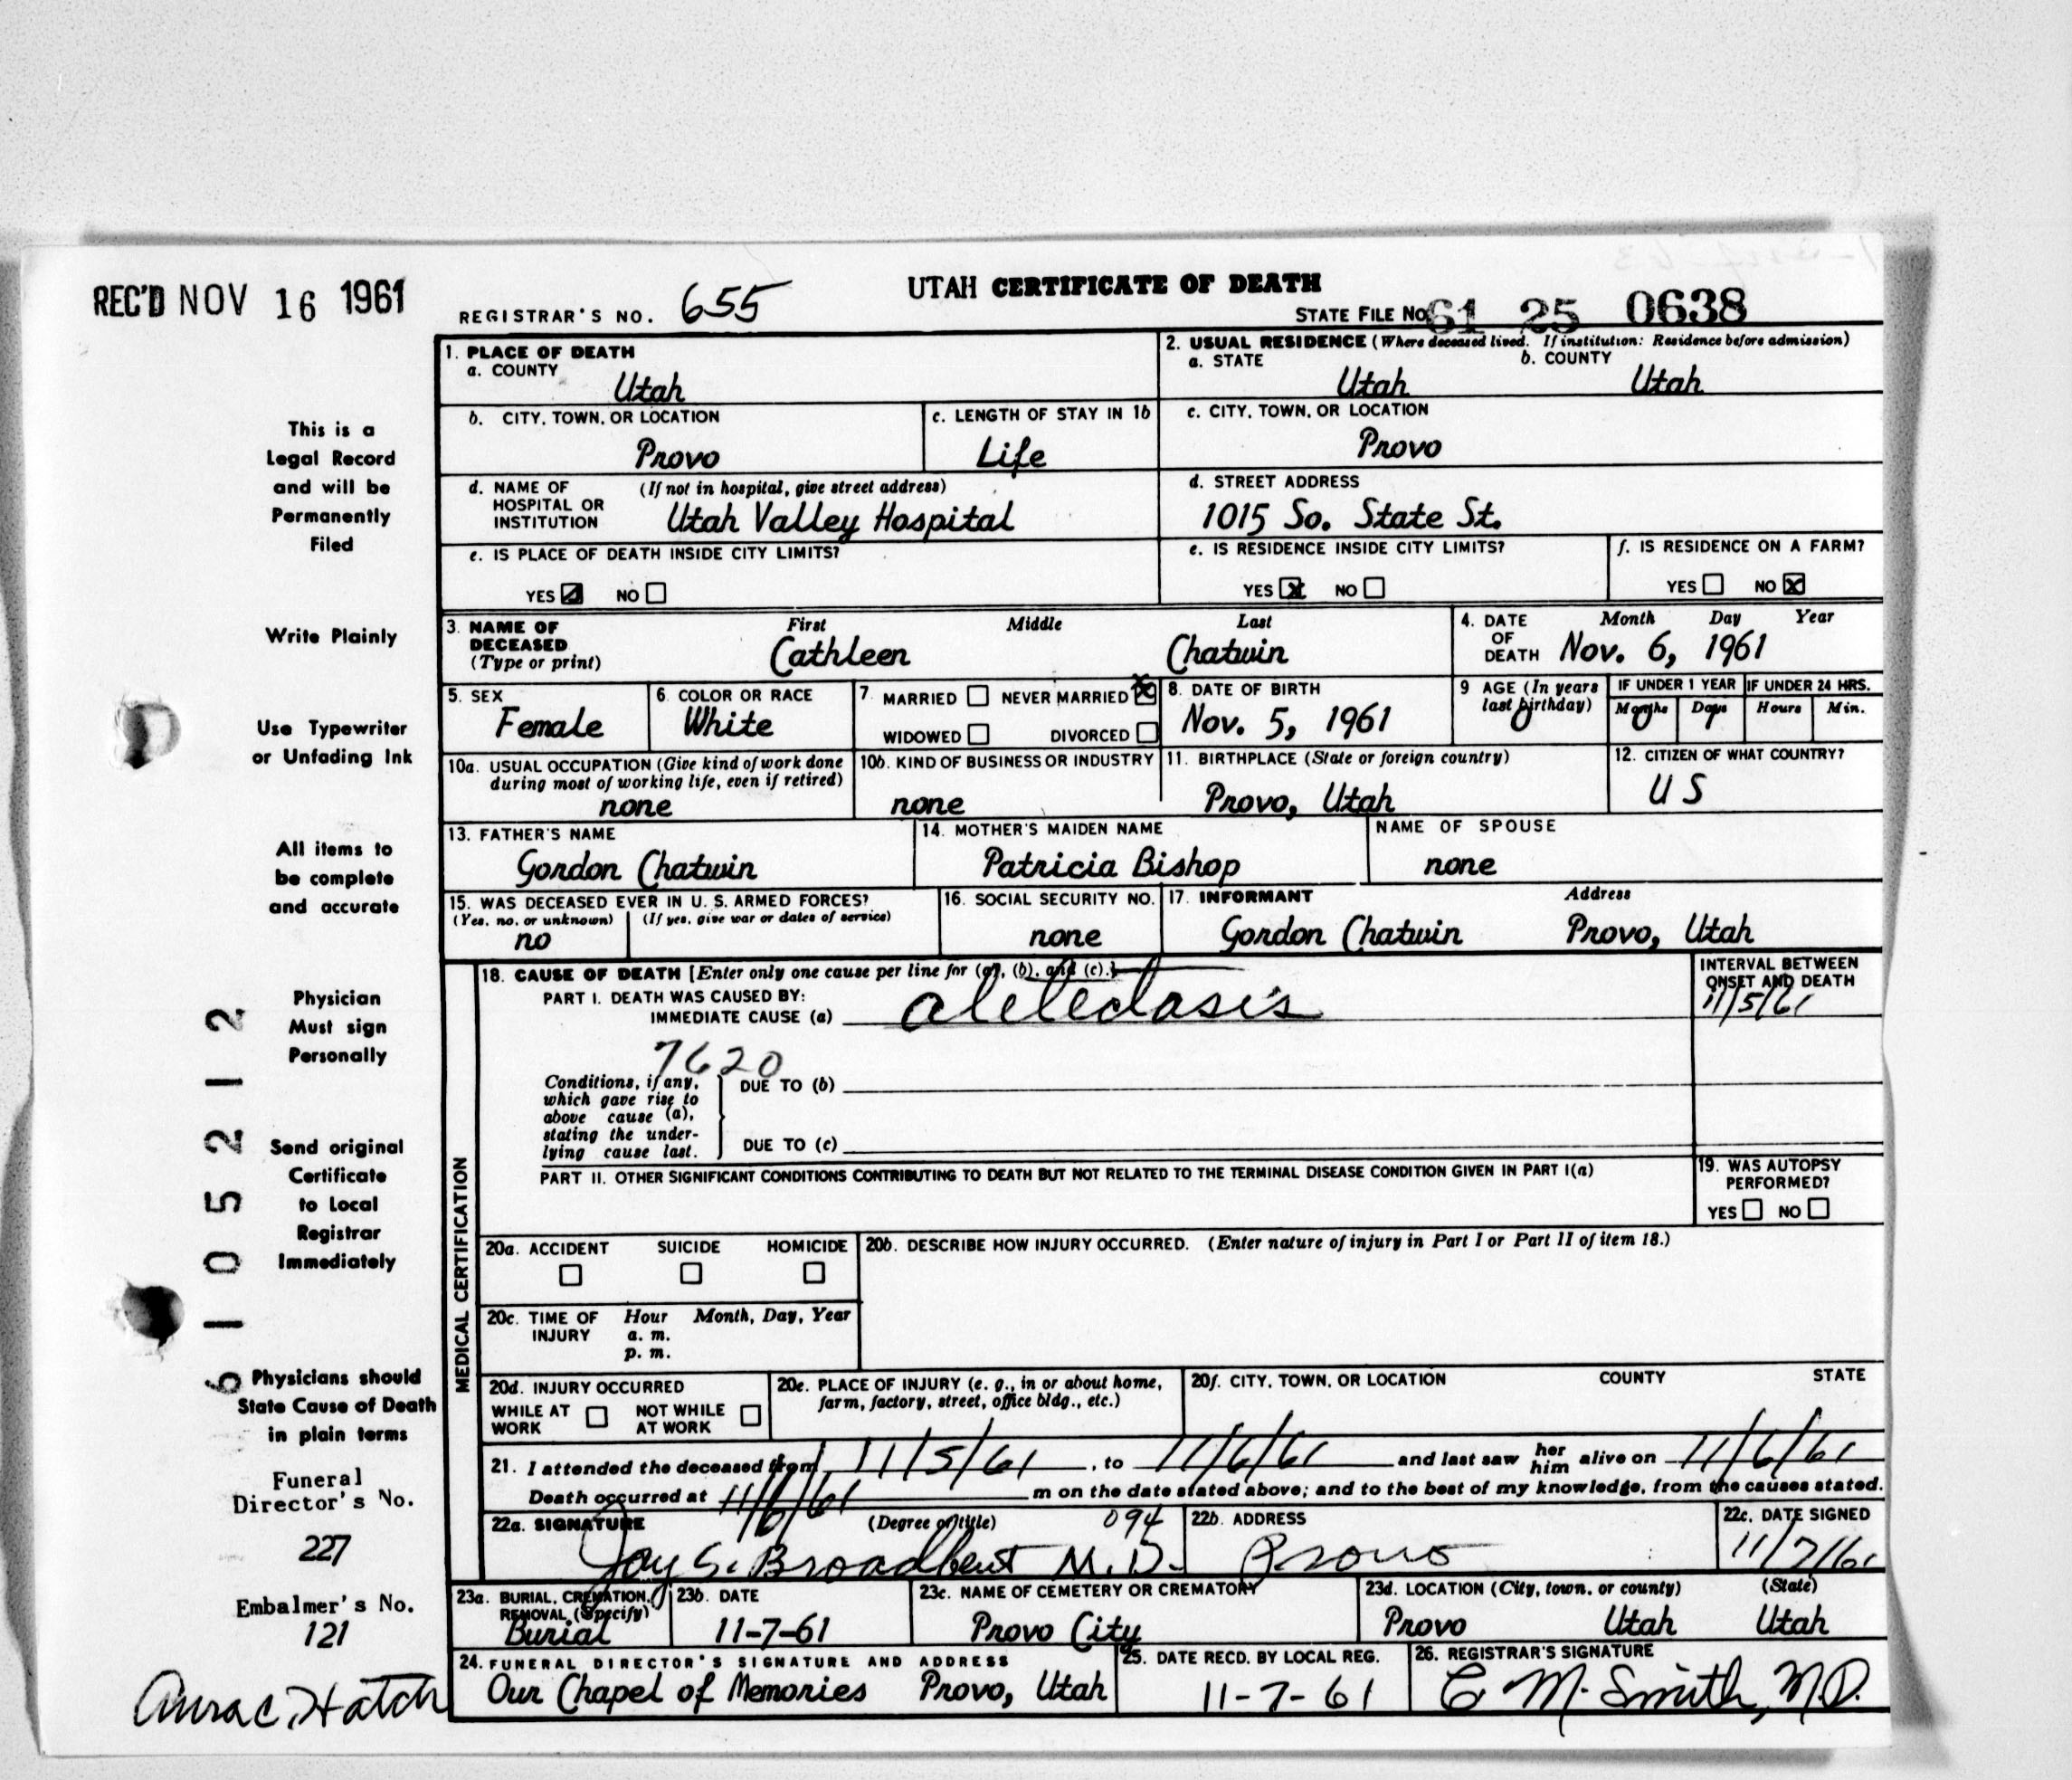 REC'D NOV 16 1961
REGISTRAR'S NO. 655
UTAH CERTIFICATE OF DEATH
STATE FILE NO. 61 25 0638
1. PLACE OF DEATH
a. COUNTY
Utah
2. USUAL RESIDENCE (Where deceased lived. If institution: Residence before admission)
a. STATE
Utah
b. COUNTY
Utah
b. CITY, TOWN, OR LOCATION
Provo
c. LENGTH OF STAY IN 1b
Life
c. CITY, TOWN, OR LOCATION
Provo
d. NAME OF HOSPITAL OR INSTITUTION
(If not in hospital, give street address)
Utah Valley Hospital
d. STREET ADDRESS
1015 So. State St.
e. IS PLACE OF DEATH INSIDE CITY LIMITS?
YES NO
e. IS RESIDENCE INSIDE CITY LIMITS?
YES X NO
f. IS RESIDENCE ON A FARM?
YES NO X
3. NAME OF DECEASED
(Type or print)
First Middle Last
Cathleen Chatwin
4. DATE OF DEATH
Month Day Year
Nov. 6, 1961
5. SEX
Female
6. COLOR OR RACE
White
7. MARRIED NEVER MARRIED X
WIDOWED DIVORCED
8. DATE OF BIRTH
Nov. 5, 1961
9 AGE (In years last birthday)
0
IF UNDER 1 YEAR
Months Days
IF UNDER 24 HRS.
Hours Min.
10a. USUAL OCCUPATION (Give kind of work done during most of working life, even if retired)
none
10b. KIND OF BUSINESS OR INDUSTRY
none
11. BIRTHPLACE (State or foreign country)
Provo, Utah
12. CITIZEN OF WHAT COUNTRY?
U S
13. FATHER'S NAME
Gordon Chatwin
14. MOTHER'S MAIDEN NAME
Patricia Bishop
NAME OF SPOUSE
none
15. WAS DECEASED EVER IN U. S. ARMED FORCES?
(Yes, no, or unknown) (If yes, give war or dates of service)
no
16. SOCIAL SECURITY NO.
none
17. INFORMANT Address
Gordon Chatwin Provo, Utah
MEDICAL CERTIFICATION
18. CAUSE OF DEATH [Enter only one cause per line for (a), (b), and (c).]
PART I. DEATH WAS CAUSED BY:
IMMEDIATE CAUSE (a) atelectasis
INTERVAL BETWEEN ONSET AND DEATH
11/5/61
7620
Conditions, if any, which gave rise to above cause (a), stating the underlying cause last.
DUE TO (b)
DUE TO (c)
PART II. OTHER SIGNIFICANT CONDITIONS CONTRIBUTING TO DEATH BUT NOT RELATED TO THE TERMINAL DISEASE CONDITION GIVEN IN PART I(a)
19. WAS AUTOPSY PERFORMED?
YES NO
20a. ACCIDENT SUICIDE HOMICIDE
20b. DESCRIBE HOW INJURY OCCURRED. (Enter nature of injury in Part I or Part II of item 18.)
20c. TIME OF INJURY
Hour Month, Day, Year
a. m.
p. m.
20d. INJURY OCCURRED
WHILE AT WORK NOT WHILE AT WORK
20e. PLACE OF INJURY (e. g., in or about home, farm, factory, street, office bldg., etc.)
20f. CITY, TOWN, OR LOCATION COUNTY STATE
21. I attended the deceased from 11/5/61, to 11/6/61 and last saw her him alive on 11/6/61
Death occurred at 11/6/61 m on the date stated above; and to the best of my knowledge, from the causes stated.
22a. SIGNATURE (Degree or title) 094
Jay S. Broadbent M.D.
22b. ADDRESS
Provo
22c. DATE SIGNED
11/7/61
23a. BURIAL, CREMATION, REMOVAL (Specify)
Burial
23b. DATE
11-7-61
23c. NAME OF CEMETERY OR CREMATORY
Provo City
23d. LOCATION (City, town, or county) (State)
Provo Utah Utah
24. FUNERAL DIRECTOR'S SIGNATURE AND ADDRESS
Our Chapel of Memories Provo, Utah
25. DATE RECD. BY LOCAL REG.
11-7-61
26. REGISTRAR'S SIGNATURE
E M. Smith, M.D.
This is a
Legal Record
and will be
Permanently
Filed
Write Plainly
Use Typewriter
or Unfading Ink
All items to
be complete
and accurate
Physician
Must sign
Personally
Send original
Certificate
to Local
Registrar
Immediately
Physicians should
State Cause of Death
in plain terms
Funeral
Director's No.
227
Embalmer's No.
121
Hatch
6105212